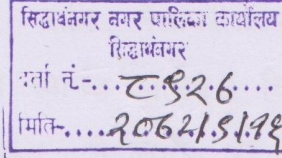 सिद्धार्थनगर नगर पालिका कार्यालय
सिद्धार्थनगर
दर्ता नं.-...८९२७....
मिति-....२०६२/९/१६